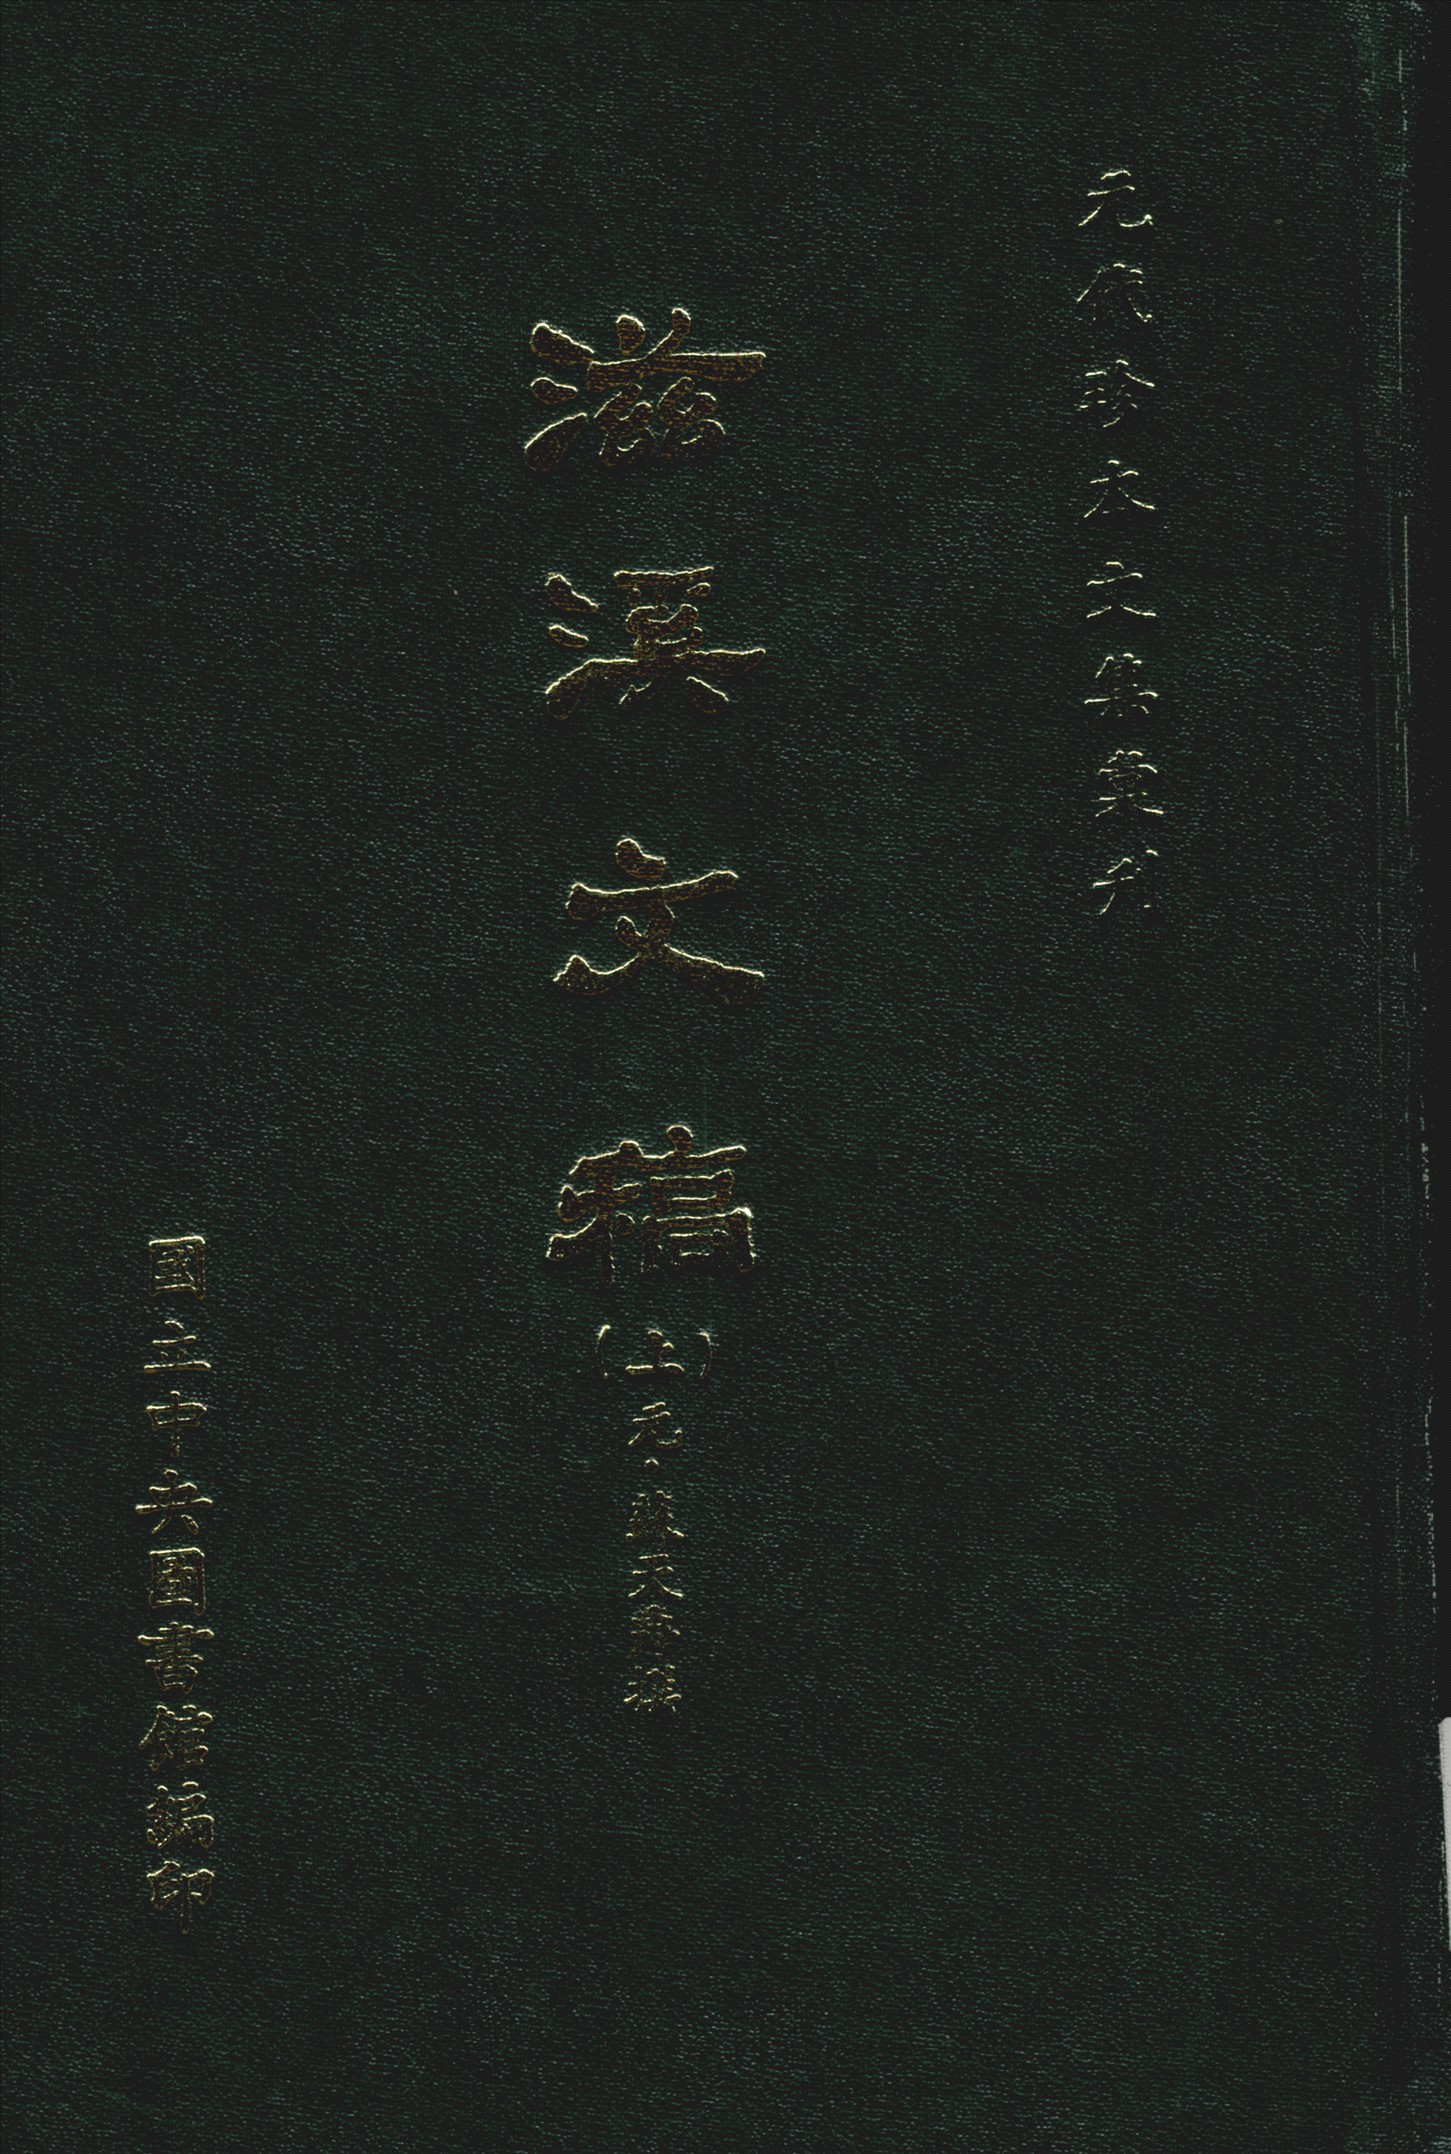 元代珍本文集彙刊
滋溪文稿(上)元、蘇天爵撰
國立中央圖書館編印